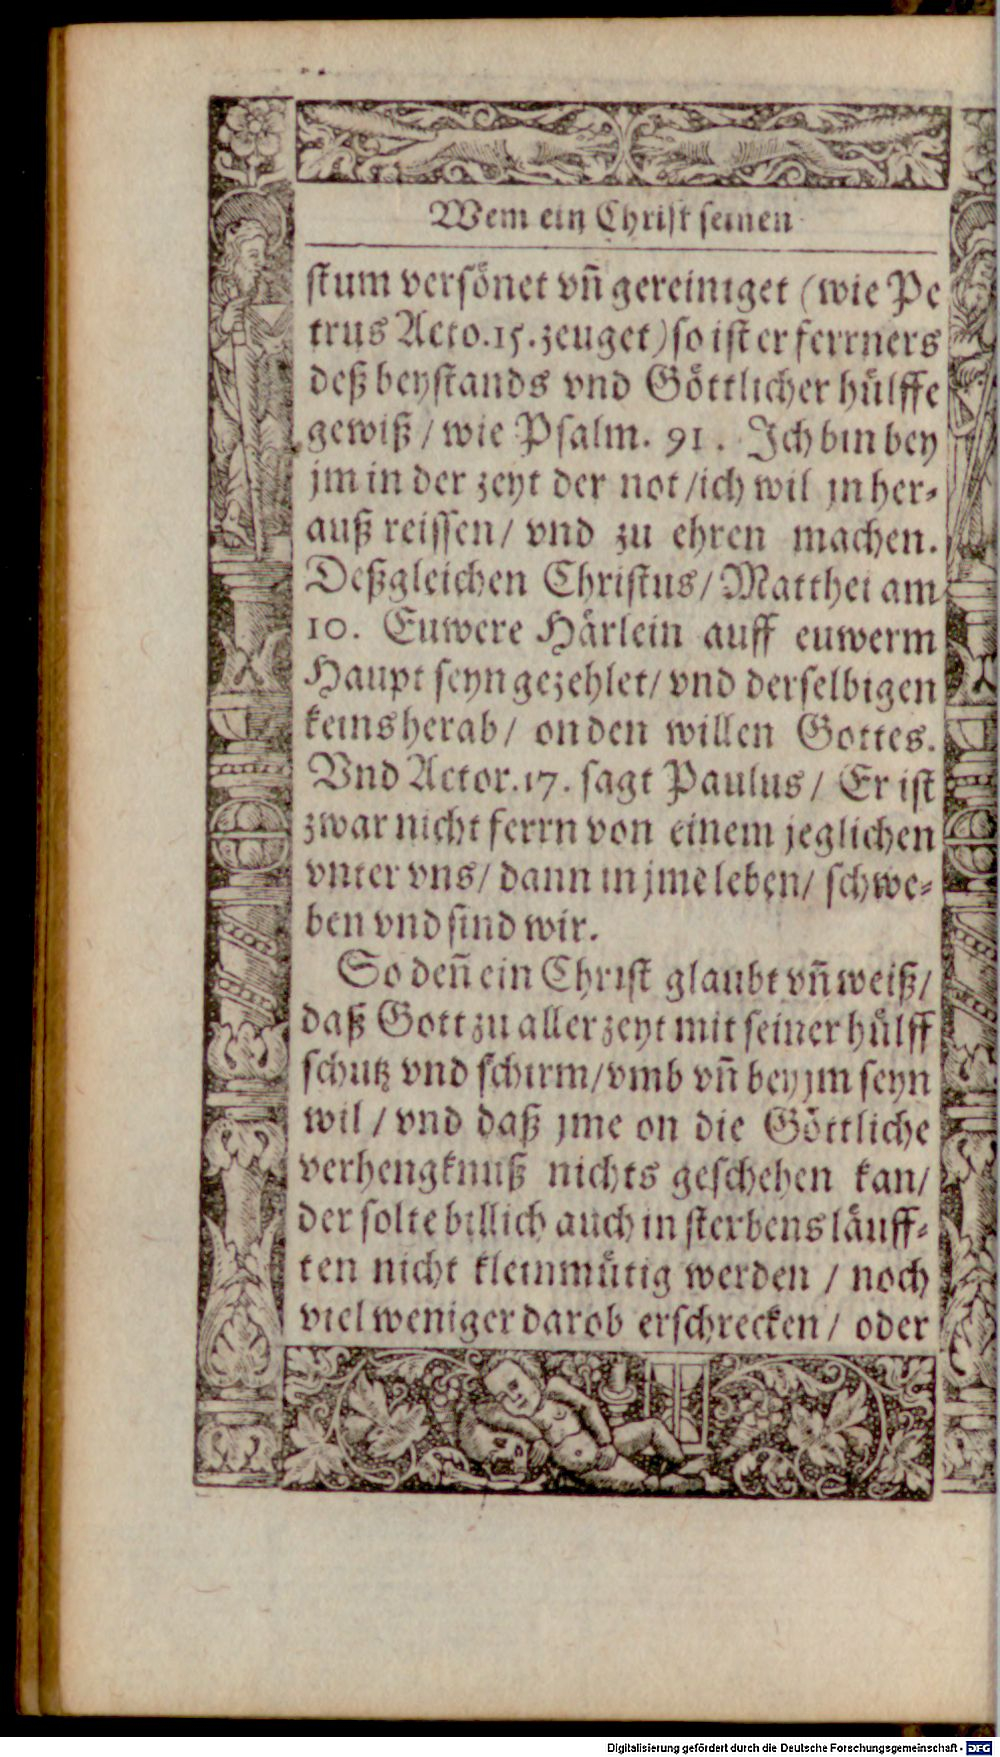 Wem ein Christ seinen
stum versönet vñ gereiniget (wie Pe
trus Acto.15.zeuget) so ist er ferrners
deß beystands vnd Göttlicher hülffe
gewiß / wie Psalm. 91. Ich bin bey
jm in der zeyt der not / ich wil jn her-
auß reissen / vnd zu ehren machen.
Deßgleichen Christus / Matthei am
10. Euwere Härlein auff euwerm
Haupt seyn gezehlet / vnd derselbigen
keins herab / on den willen Gottes.
Vnd Actor.17. sagt Paulus / Er ist
zwar nicht ferrn von einem jeglichen
vnter vns / dann in jme leben / schwe-
ben vnd sind wir.
So deñ ein Christ glaubt vñ weiß /
daß Gott zu aller zeyt mit seiner hülff
schutz vnd schirm / vmb vñ bey jm seyn
wil / vnd daß jme on die Göttliche
verhengknuß nichts geschehen kan /
der solte billich auch in sterbens läuff-
ten nicht kleinmütig werden / noch
viel weniger darob erschrecken / oder
Digitalisierung gefördert durch die Deutsche Forschungsgemeinschaft - DFG